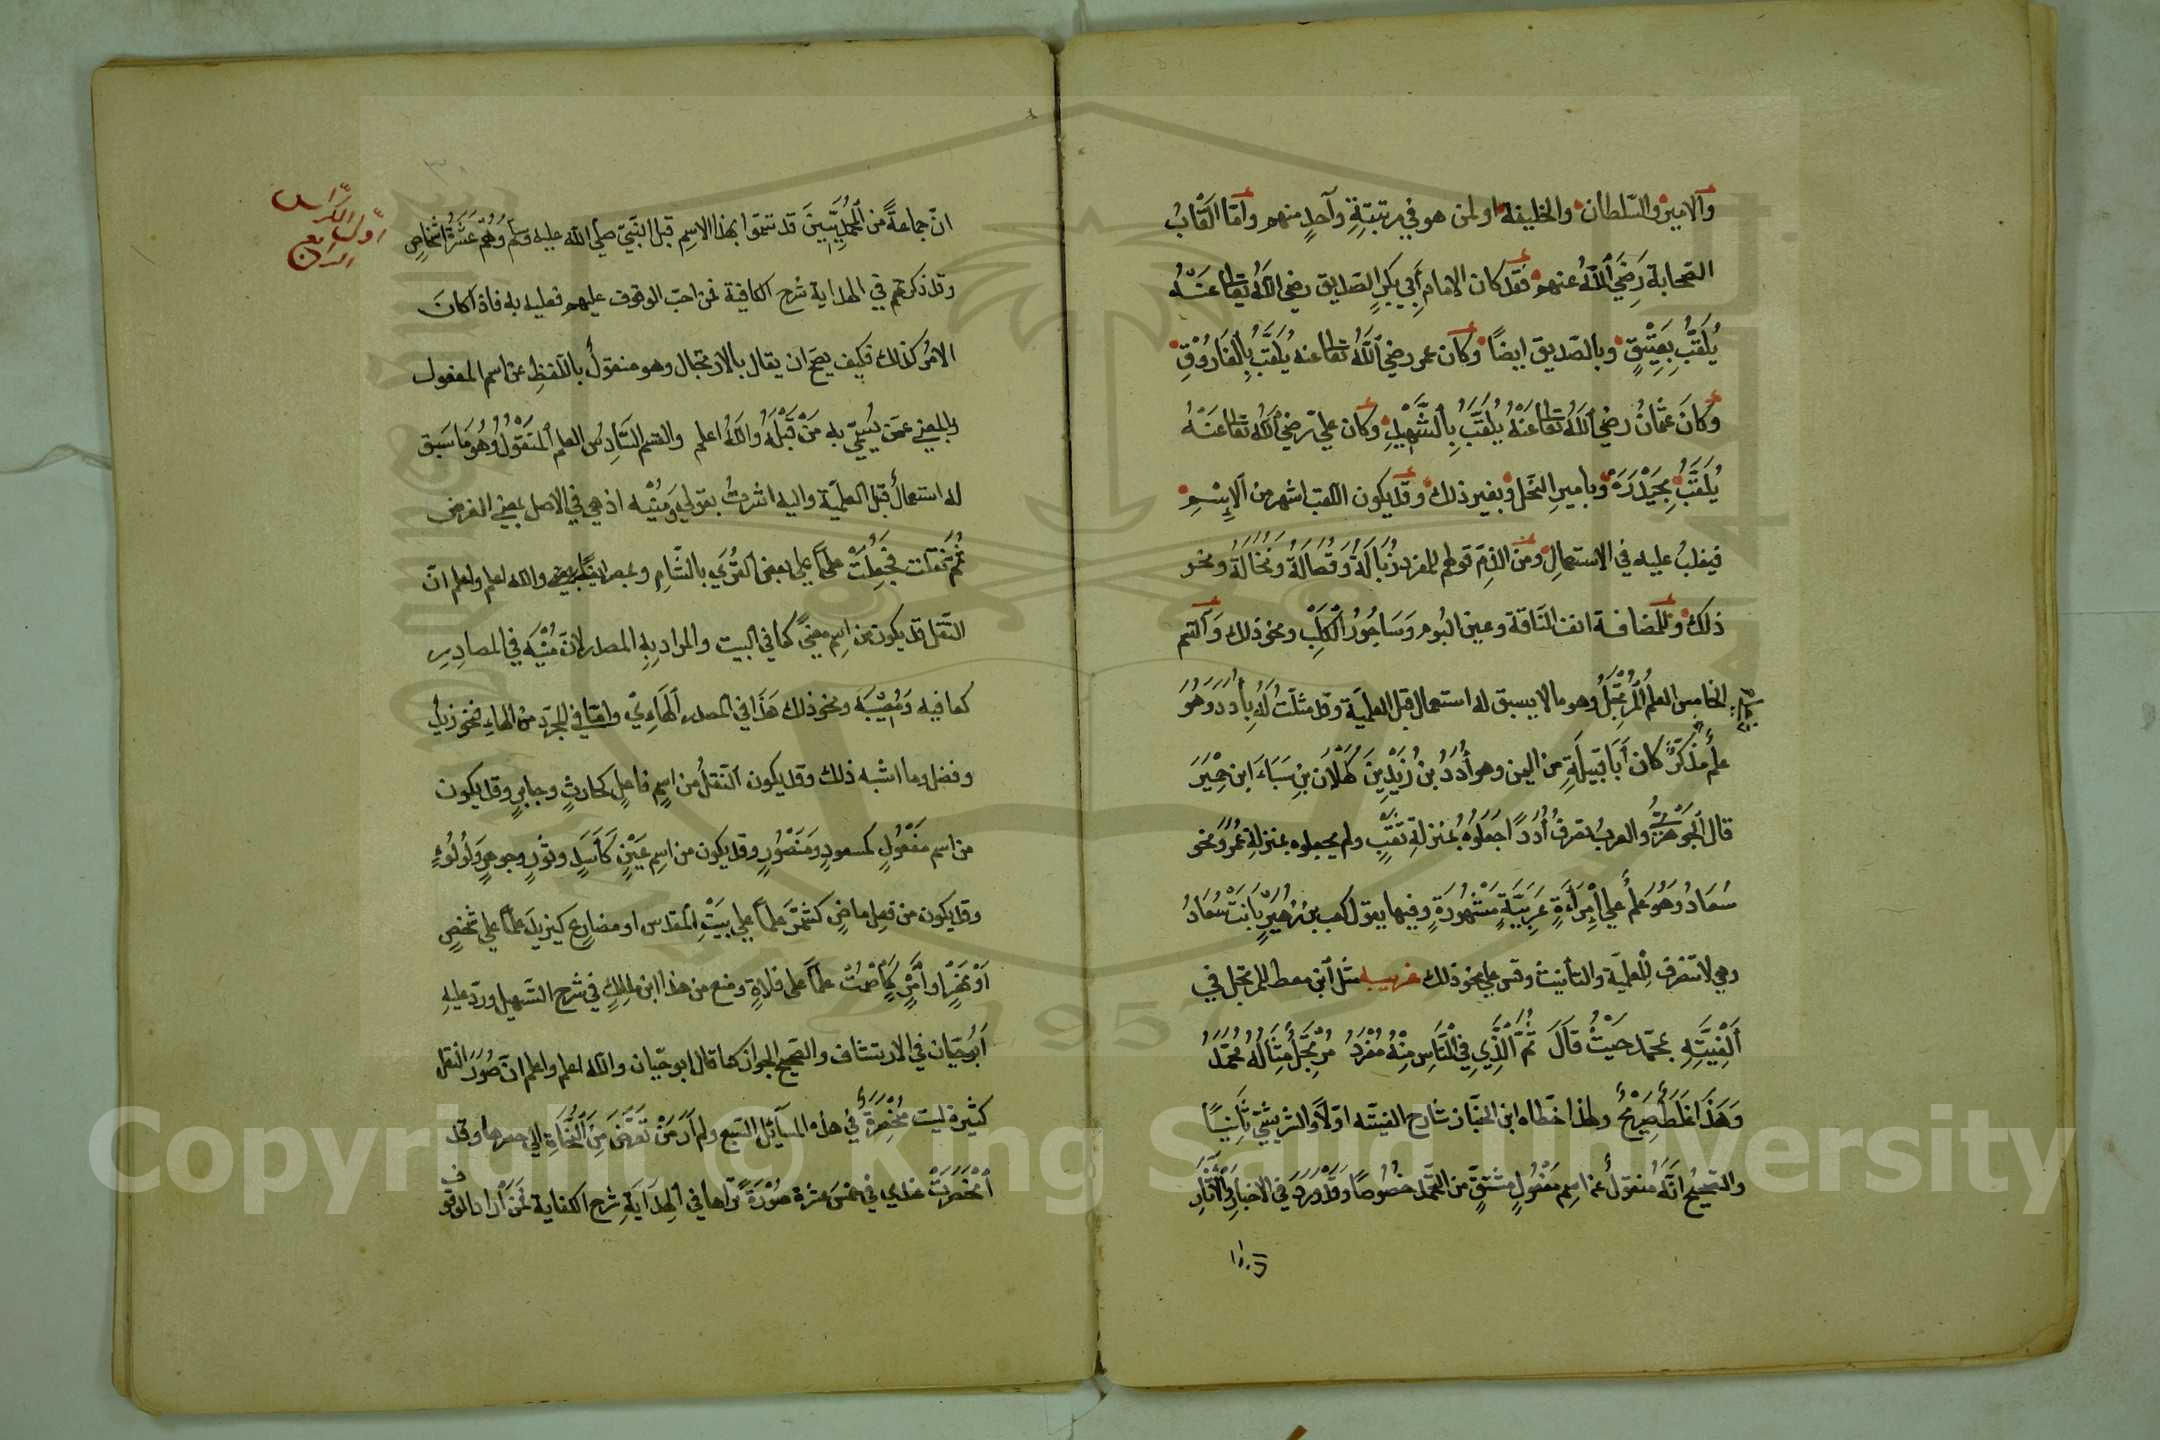 والامير والسّلطان والخليفة اولمن هو في مرتبَةِ وآحدٍ منهم وأمّا القَابُ
الصّحابة رَضيَ اللهُ عنهم فقد كان الامام أبي بكرٍ الصّديق رضي اللهُ تعالى عنهُ
يُلَقَّبُ بِعَتِيْقٍ وبالصّديق ايضاً وكان عمر رضي اللهُ تعالى عنه يُلَقَّبُ بِالفَارُوْقِ
وكَانَ عثمانُ رضي اللهُ تعالى عَنْهُ يُلَقَّبُ بِالشَّهِيْدِ وكان علي رضي اللهُ تعالى عَنْهُ
يُلَقَّبُ بِحَيْدَرَهْ وبامير النّحل وبغير ذلك وقد يكون اللقب اشهر من الاِسْمِ
فيغلبُ عليه في الاستعمال ومن الذمّ قولهم للمفرد زُبَالَةُ وَقُصَالَةُ وَنُخَالَةُ ونحو
ذلك وللمضافة انف النّاقة وعين البُوم وَسَاجُورُ الْكَلْبِ ونحو ذلك وَالقسم
الخامس العلمُ الْمُرْتَجَلُ وهو مالا يسبق له استعمال قبل العلميّة وقد مثلتُ لَهُ بِأُدَدَ وَهُوَ
علمُ مُذكّرٍ كان أبَا قَبِيْلَةٍ من اليمن وهو أُدَدُ بن زَيْدِ بنَ كَهْلاَن بنِ سَبَاءَ ابن حِمْيَرَ
قال الجَوْهَرِيُّ والعربُ تصرفُ أُدَدًا جَعَلُوهُ بمَنزلةِ نَقَبٍ ولم يجعلوه بمنزلةِ عُمَرَ ونحو
سُعَادُ وَهُوَ عَلَمٌ علي اِمْرَاَءَةٍ عَرَبِيَّةٍ مَشْهُورَةٍ وفيها يقول كعب بن زُهَيْرٍ بَانَتْ سُعَادُ
وهي لا تنصرف لِلْعلميّة والتأنيث وقس علي نحو ذلك غريبه مثل ابن معط للمرتجل في
اَلْفِيَّتِهِ بمحمّد حَيْثُ قَالَ ثُمَّ الَّذِي فِي النَّاسِ مِنْهُ مُفْرَدُ مُرْتَجَلٌ مِثَالُهُ مُحَمَّدُ
وَهَذَا غَلَطٌ صَرِيْحٌ ولهذا خطّاه ابن الخبّاز شارح الفيّته اوّلاً والشريشيّ ثَانِياً
والصّحيحُ انّهُ منقولٌ عن اسِم مَفْعُولٍ مشتقٍّ من الحَمْد خصُوصًا وَقَدْ وَرَدَ في الاخبارِ وَالْآثارِ
انّ جماعةً من الْجَاهِلِيِّينَ قد تسمّوا بهذا الاسمِ قبل النّبيّ صلي اللهُ عليه وسلم وَهُمْ عَشَرَةُ اشخاصٍ
وقد ذكرتهم في الهداية شرح الكافية فمن احبّ الوقوف عليهم فعليه به فاذا كانَ
الامرُ كذلك فكيف يصحّ ان يقال بالارتجال وهو منقولٌ باللّفظِ عن اسم المفعول
وبالمعني عمّن يُسَمِّيْ به مَنْ قَبْلَهُ واللهُ اعلم والقسم السّادسُ العلم المنْقُولُ وَهُوَ مَا سَبق
له استعمالٌ قبل العلميّة واليه اشرتُ بقولي وَمُنْيَه اذ هي في الاصل بمعني الغرض
ثُمَّ نُقلت فجُعِلَتْ علماً علي بعض القُرَي بالشّامِ وبمصر ايضاً والله اعلم واعلم انّ
النّقل قد يكون من اسِم معنيً كما في البيت والمراد بِهِ المصدر لانّ مُنْيَه في المصادِر
كعافيه وَمُصِيْبَه ونحو ذلك هَذَا في المصدر الهَاءِيّ وامّا في المجرّد من الهاء فنحو زيدٍ
وفضل وما اشبه ذلك وقد يكون النّقلُ من اسمٍ فاعلٍ كحارثٍ وجابرٍ وقد يكون
من اسم مَفْعُولٍ كمسعودٍ ومَنْصُورٍ وقد يكون من اسِم عَيْنٍ كَأَسَدٍ وثورٍ وجوهرٍ وَلُؤْلُؤٍ
وقد يكون من فعل ماضٍ كشَمّرَ علماً علي بَيْتِ المقدس او مضارع كيزيدَ علماً علي شخصٍ
اَوْ نَهْرٍ او أَمْرٍ كَإِصْمِتْ علماً على فلاةٍ ومنع من هذا ابن مالكٍ في شرح التسهيل وردّ عليه
اَبُو حَيّان في الارتشاف والصّحيح الجواز كما قال ابو حَيّان والله اعلم واعلم انّ صُوَرَ النّقل
كثيرة ليست مُنْحَصِرَةً في هذه المسآئل السّبع ولم أرَ مَنْ تَعَرَّضَ مِنَ النُّحَاةِ الي حصرها وقد
اَنْحَصَرَتْ عندي في خمسَ عشرة صُوْرَةً تراها في الهدَايَةِ شرح الكفاية لمَنْ اَرَادَ الوقوف
اوّل الكرّاس
الرابع